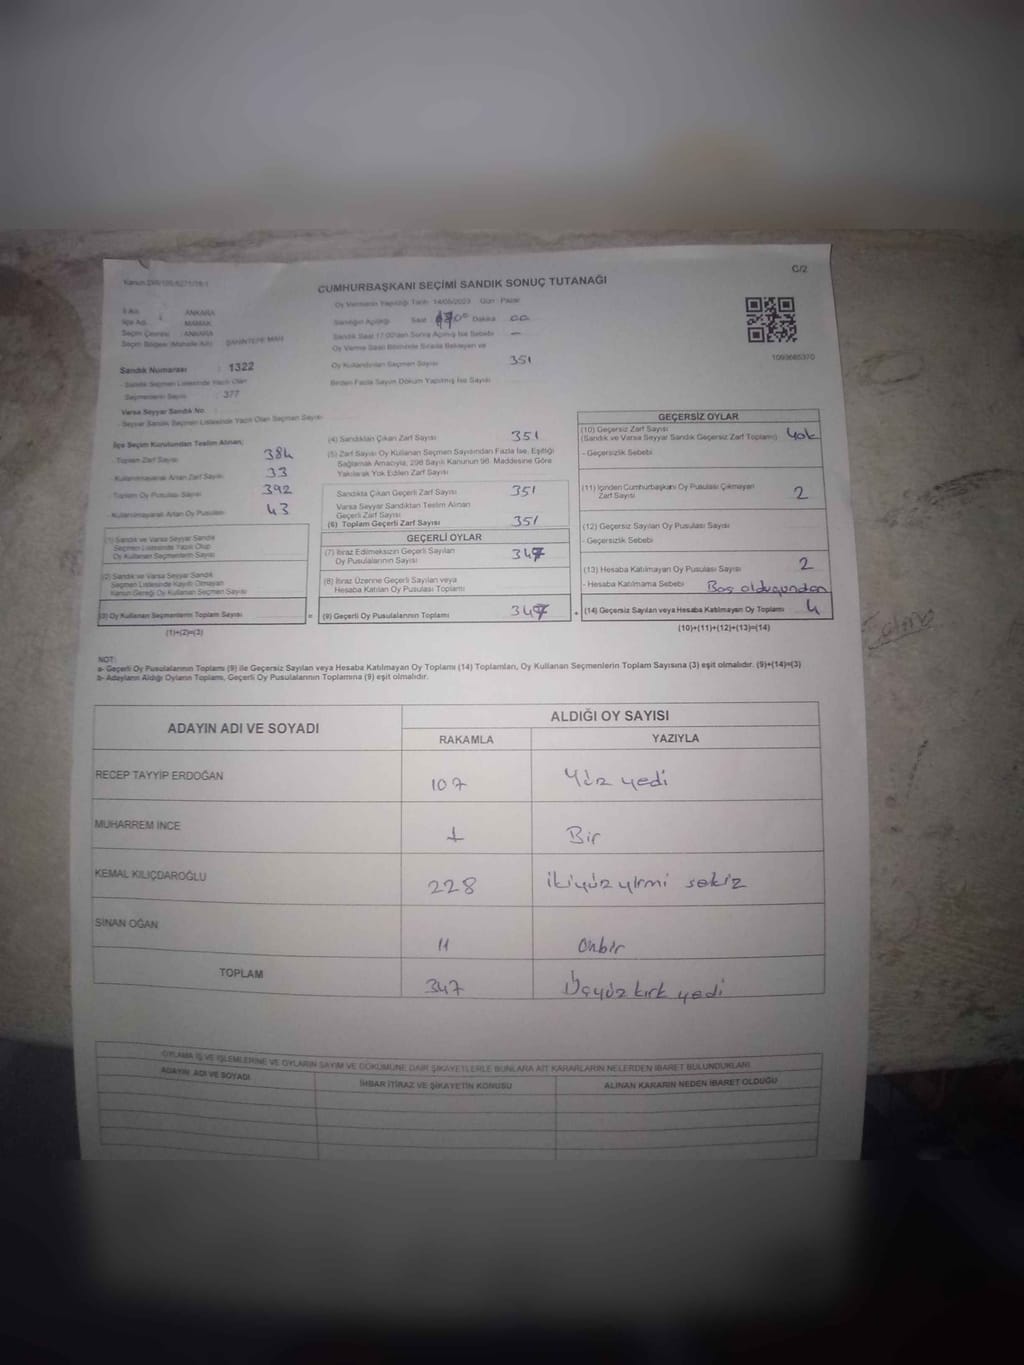 CUMHURBAŞKANI SEÇİMİ SANDIK SONUÇ TUTANAĞI
C/2
Oy Vermenin Yapıldığı Tarih 14/05/2023 Gün: Pazar
İl Adı ANKARA
İlçe Adı MAMAK
Seçim Çevresi ANKARA
Seçim Bölgesi (Mahalle/Köy) ŞAHİNTEPE MAH
Sandığın Açıldığı Saat Dakika 00
Sandık Saat 17.00'den Sonra Açılmış İse Sebebi —
Oy Verme Saati Bitiminde Sırada Bekleyen ve
Oy Kullandırılan Seçmen Sayısı 351
1093685370
Sandık Numarası : 1322
- Sandık Seçmen Listesinde Yazılı Olan
Seçmenlerin Sayısı : 377
Birden Fazla Sayım Döküm Yapılmış İse Sayısı
Varsa Seyyar Sandık No
- Seyyar Sandık Seçmen Listesinde Yazılı Olan Seçmen Sayısı
İlçe Seçim Kurulundan Teslim Alınan;
- Toplam Zarf Sayısı 384
- Kullanılmayarak Artan Zarf Sayısı 33
- Toplam Oy Pusulası Sayısı 392
- Kullanılmayarak Artan Oy Pusulası 43
(1) Sandık ve Varsa Seyyar Sandık
Seçmen Listesinde Yazılı Olup
Oy Kullanan Seçmenlerin Sayısı
(2) Sandık ve Varsa Seyyar Sandık
Seçmen Listesinde Kayıtlı Olmayan
Kanun Gereği Oy Kullanan Seçmen Sayısı
(3) Oy Kullanan Seçmenlerin Toplam Sayısı
(1)+(2)=(3)
=
(4) Sandıktan Çıkan Zarf Sayısı 351
(5) Zarf Sayısı Oy Kullanan Seçmen Sayısından Fazla İse, Eşitliği
Sağlamak Amacıyla, 298 Sayılı Kanunun 98. Maddesine Göre
Yakılarak Yok Edilen Zarf Sayısı
Sandıkta Çıkan Geçerli Zarf Sayısı 351
Varsa Seyyar Sandıktan Teslim Alınan
Geçerli Zarf Sayısı
(6) Toplam Geçerli Zarf Sayısı 351
GEÇERLİ OYLAR
(7) İtiraz Edilmeksizin Geçerli Sayılan
Oy Pusulalarının Sayısı 347
(8) İtiraz Üzerine Geçerli Sayılan veya
Hesaba Katılan Oy Pusulası Toplamı
(9) Geçerli Oy Pusulalarının Toplamı 347
+
GEÇERSİZ OYLAR
(10) Geçersiz Zarf Sayısı
(Sandık ve Varsa Seyyar Sandık Geçersiz Zarf Toplamı) Yok
- Geçersizlik Sebebi
(11) İçinden Cumhurbaşkanı Oy Pusulası Çıkmayan
Zarf Sayısı 2
(12) Geçersiz Sayılan Oy Pusulası Sayısı
- Geçersizlik Sebebi
(13) Hesaba Katılmayan Oy Pusulası Sayısı 2
- Hesaba Katılmama Sebebi Boş olduğundan
(14) Geçersiz Sayılan veya Hesaba Katılmayan Oy Toplamı 4
(10)+(11)+(12)+(13)=(14)
NOT:
a- Geçerli Oy Pusulalarının Toplamı (9) ile Geçersiz Sayılan veya Hesaba Katılmayan Oy Toplamı (14) Toplamları, Oy Kullanan Seçmenlerin Toplam Sayısına (3) eşit olmalıdır. (9)+(14)=(3)
b- Adayların Aldığı Oyların Toplamı, Geçerli Oy Pusulalarının Toplamına (9) eşit olmalıdır.
ADAYIN ADI VE SOYADI ALDIĞI OY SAYISI
RAKAMLA YAZIYLA
RECEP TAYYİP ERDOĞAN 107 Yüz yedi
MUHARREM İNCE 1 Bir
KEMAL KILIÇDAROĞLU 228 ikiyüz yirmi sekiz
SİNAN OĞAN 11 Onbir
TOPLAM 347 Üçyüz kırk yedi
OYLAMA İŞ VE İŞLEMLERİNE VE OYLARIN SAYIM VE DÖKÜMÜNE DAİR ŞİKAYETLERLE BUNLARA AİT KARARLARIN NELERDEN İBARET BULUNDUKLARI
ADAYIN ADI VE SOYADI İHBAR İTİRAZ VE ŞİKAYETİN KONUSU ALINAN KARARIN NEDEN İBARET OLDUĞU